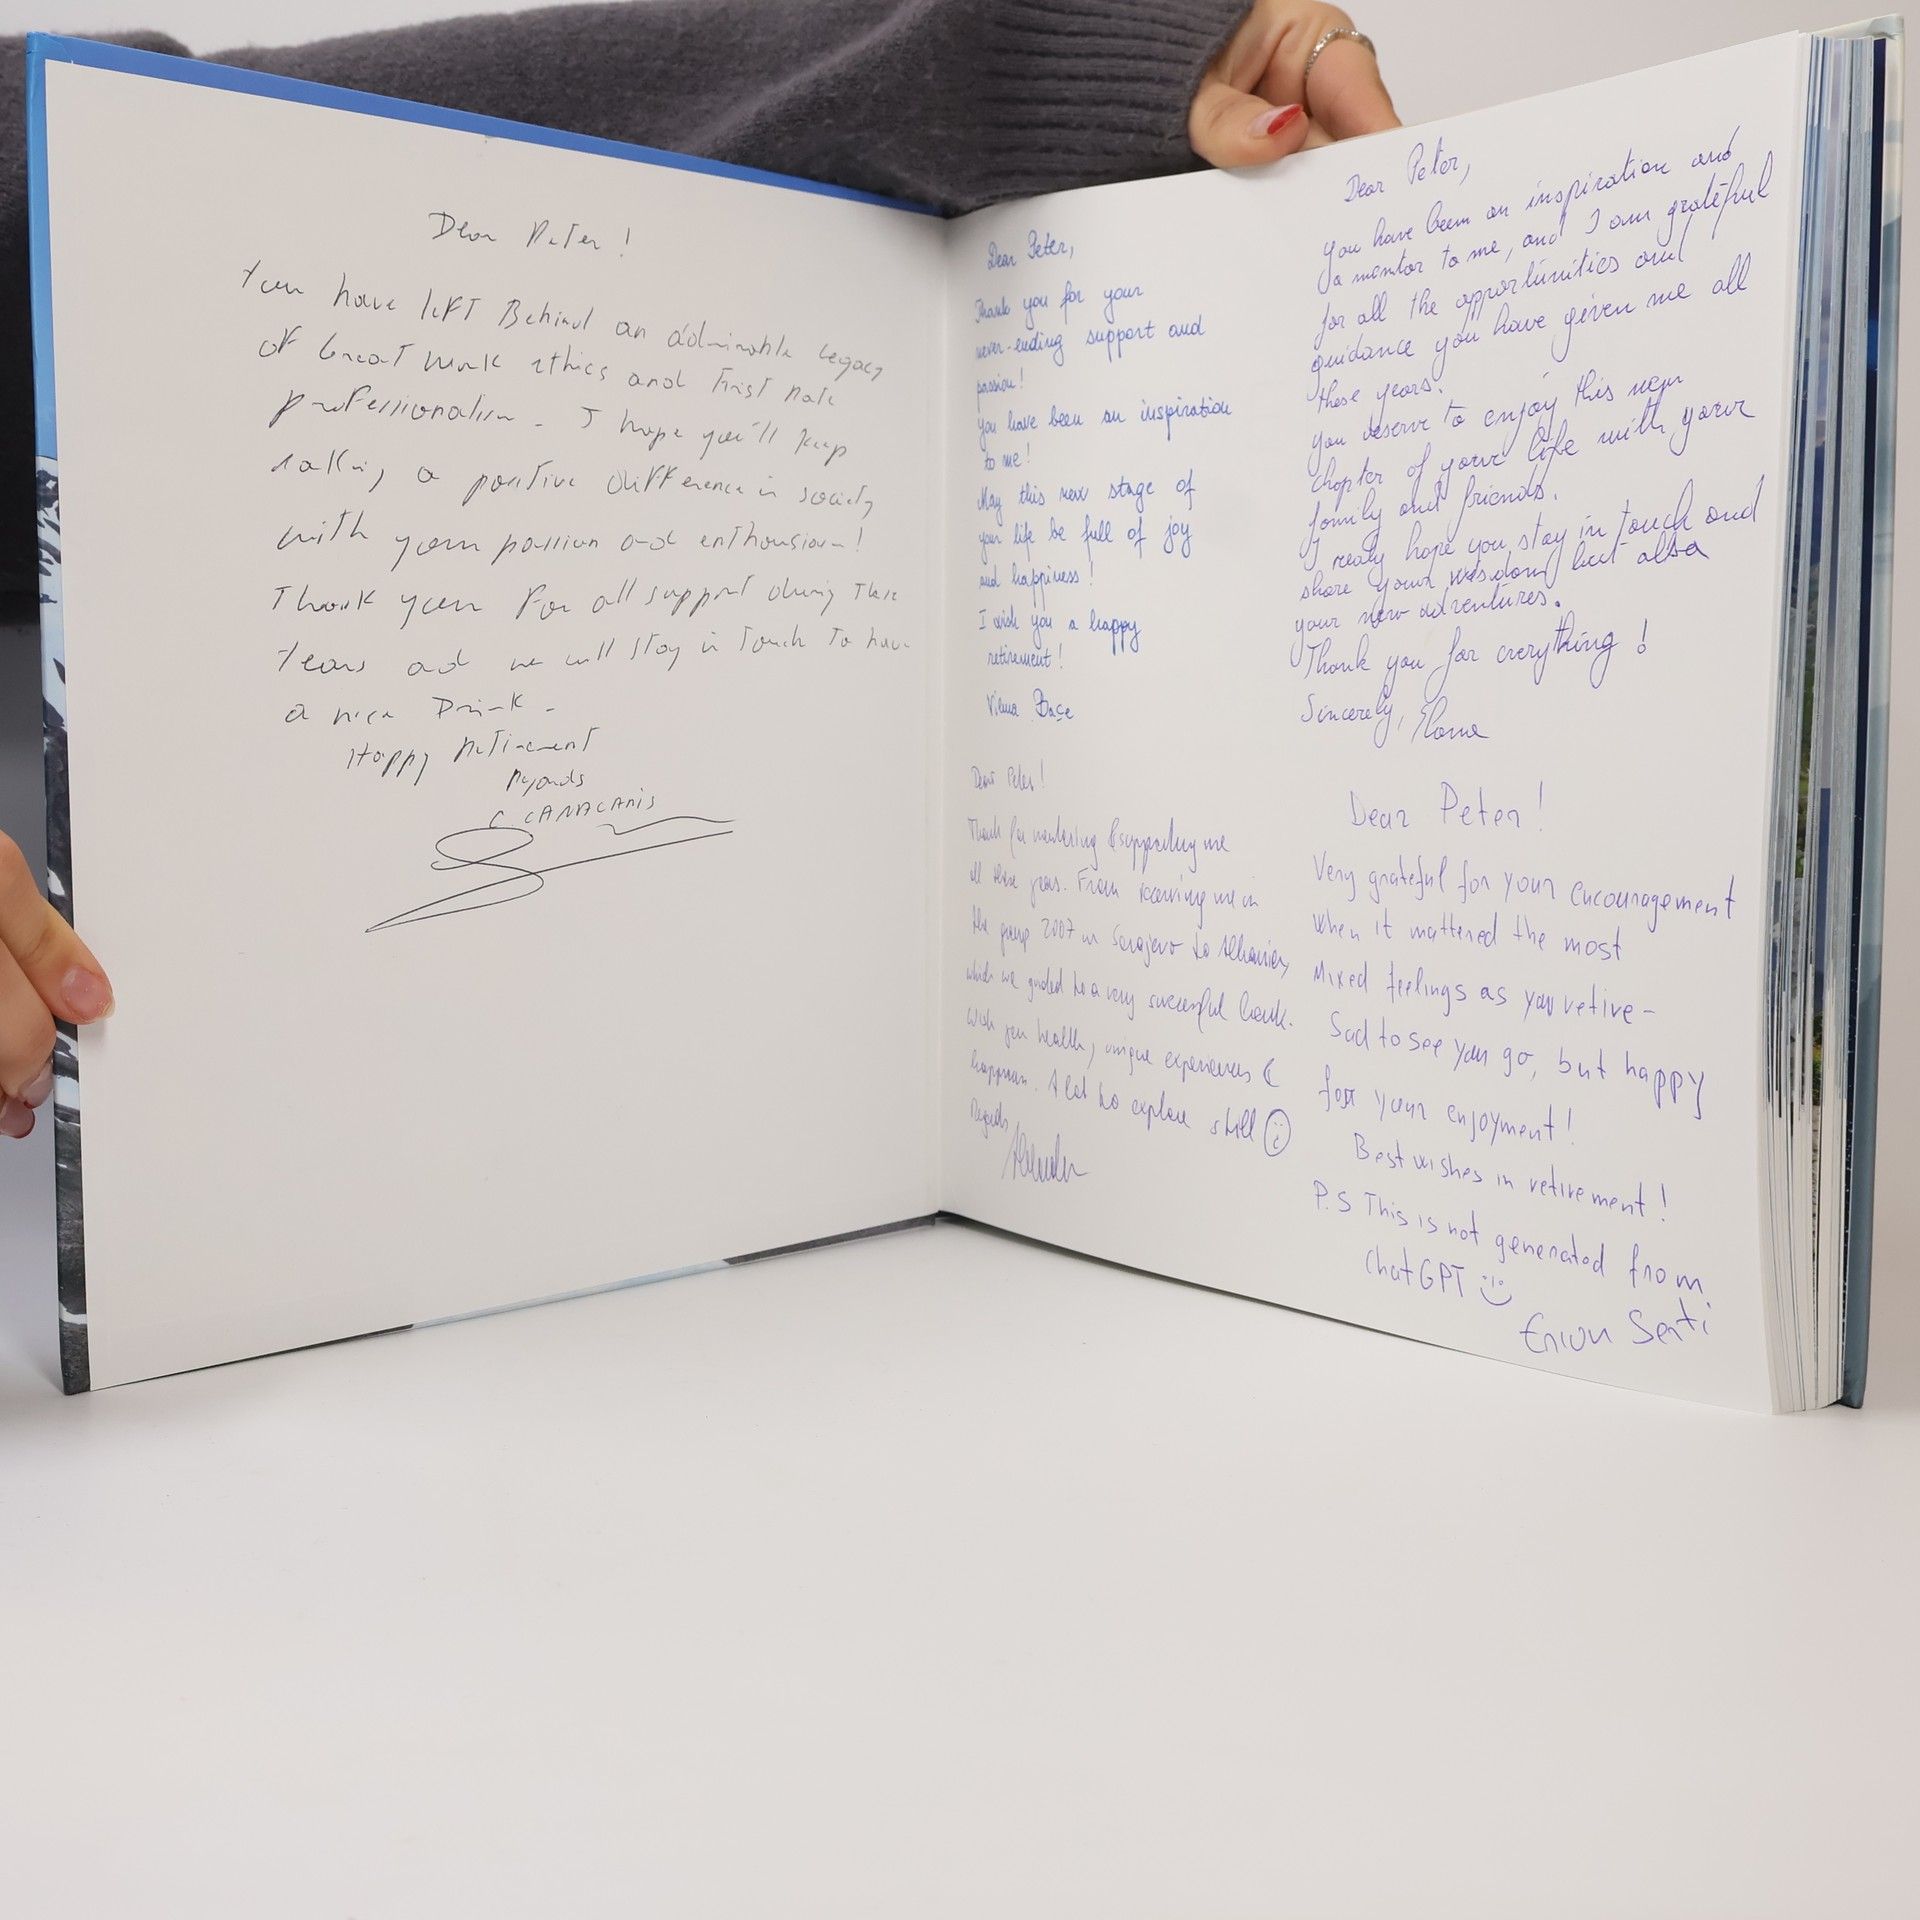 Dear Peter!
You have left Behind an admirable legacy
of Great work ethics and First Rate
professionalism. I hope you'll keep
making a positive difference in society
with your passion and enthousiasm!
Thank you for all support during These
Years and we will stay in Touch To have
a nice Drink.
Happy Retirement
Regards
C. CANACARIS
Dear Peter,
Thank you for your
never-ending support and
passion!
You have been an inspiration
to me!
May this new stage of
your life be full of joy
and happiness!
I wish you a happy
retirement!
Vilma Baçe
Dear Peter!
Thank for mentoring & supporting me
all these years. From receiving me in
the group 2007 in Sarajevo to Albania,
which we guided to a very successful bank.
Wish you health, unique experiences &
happiness. A lot to explore still
Regards,
Dear Peter,
you have been an inspiration and
a mentor to me, and I am grateful
for all the opportunities and
guidance you have given me all
these years.
you deserve to enjoy this new
chapter of your life with your
family and friends.
I realy hope you stay in touch and
share your wisdom but also
your new adventures.
Thank you for everything!
Sincerely,
Dear Peter!
Very grateful for your encouragement
when it mattered the most
Mixed feelings as you retire-
Sad to see you go, but happy
for your enjoyment!
Best wishes in retirement!
P.S This is not generated from
ChatGPT